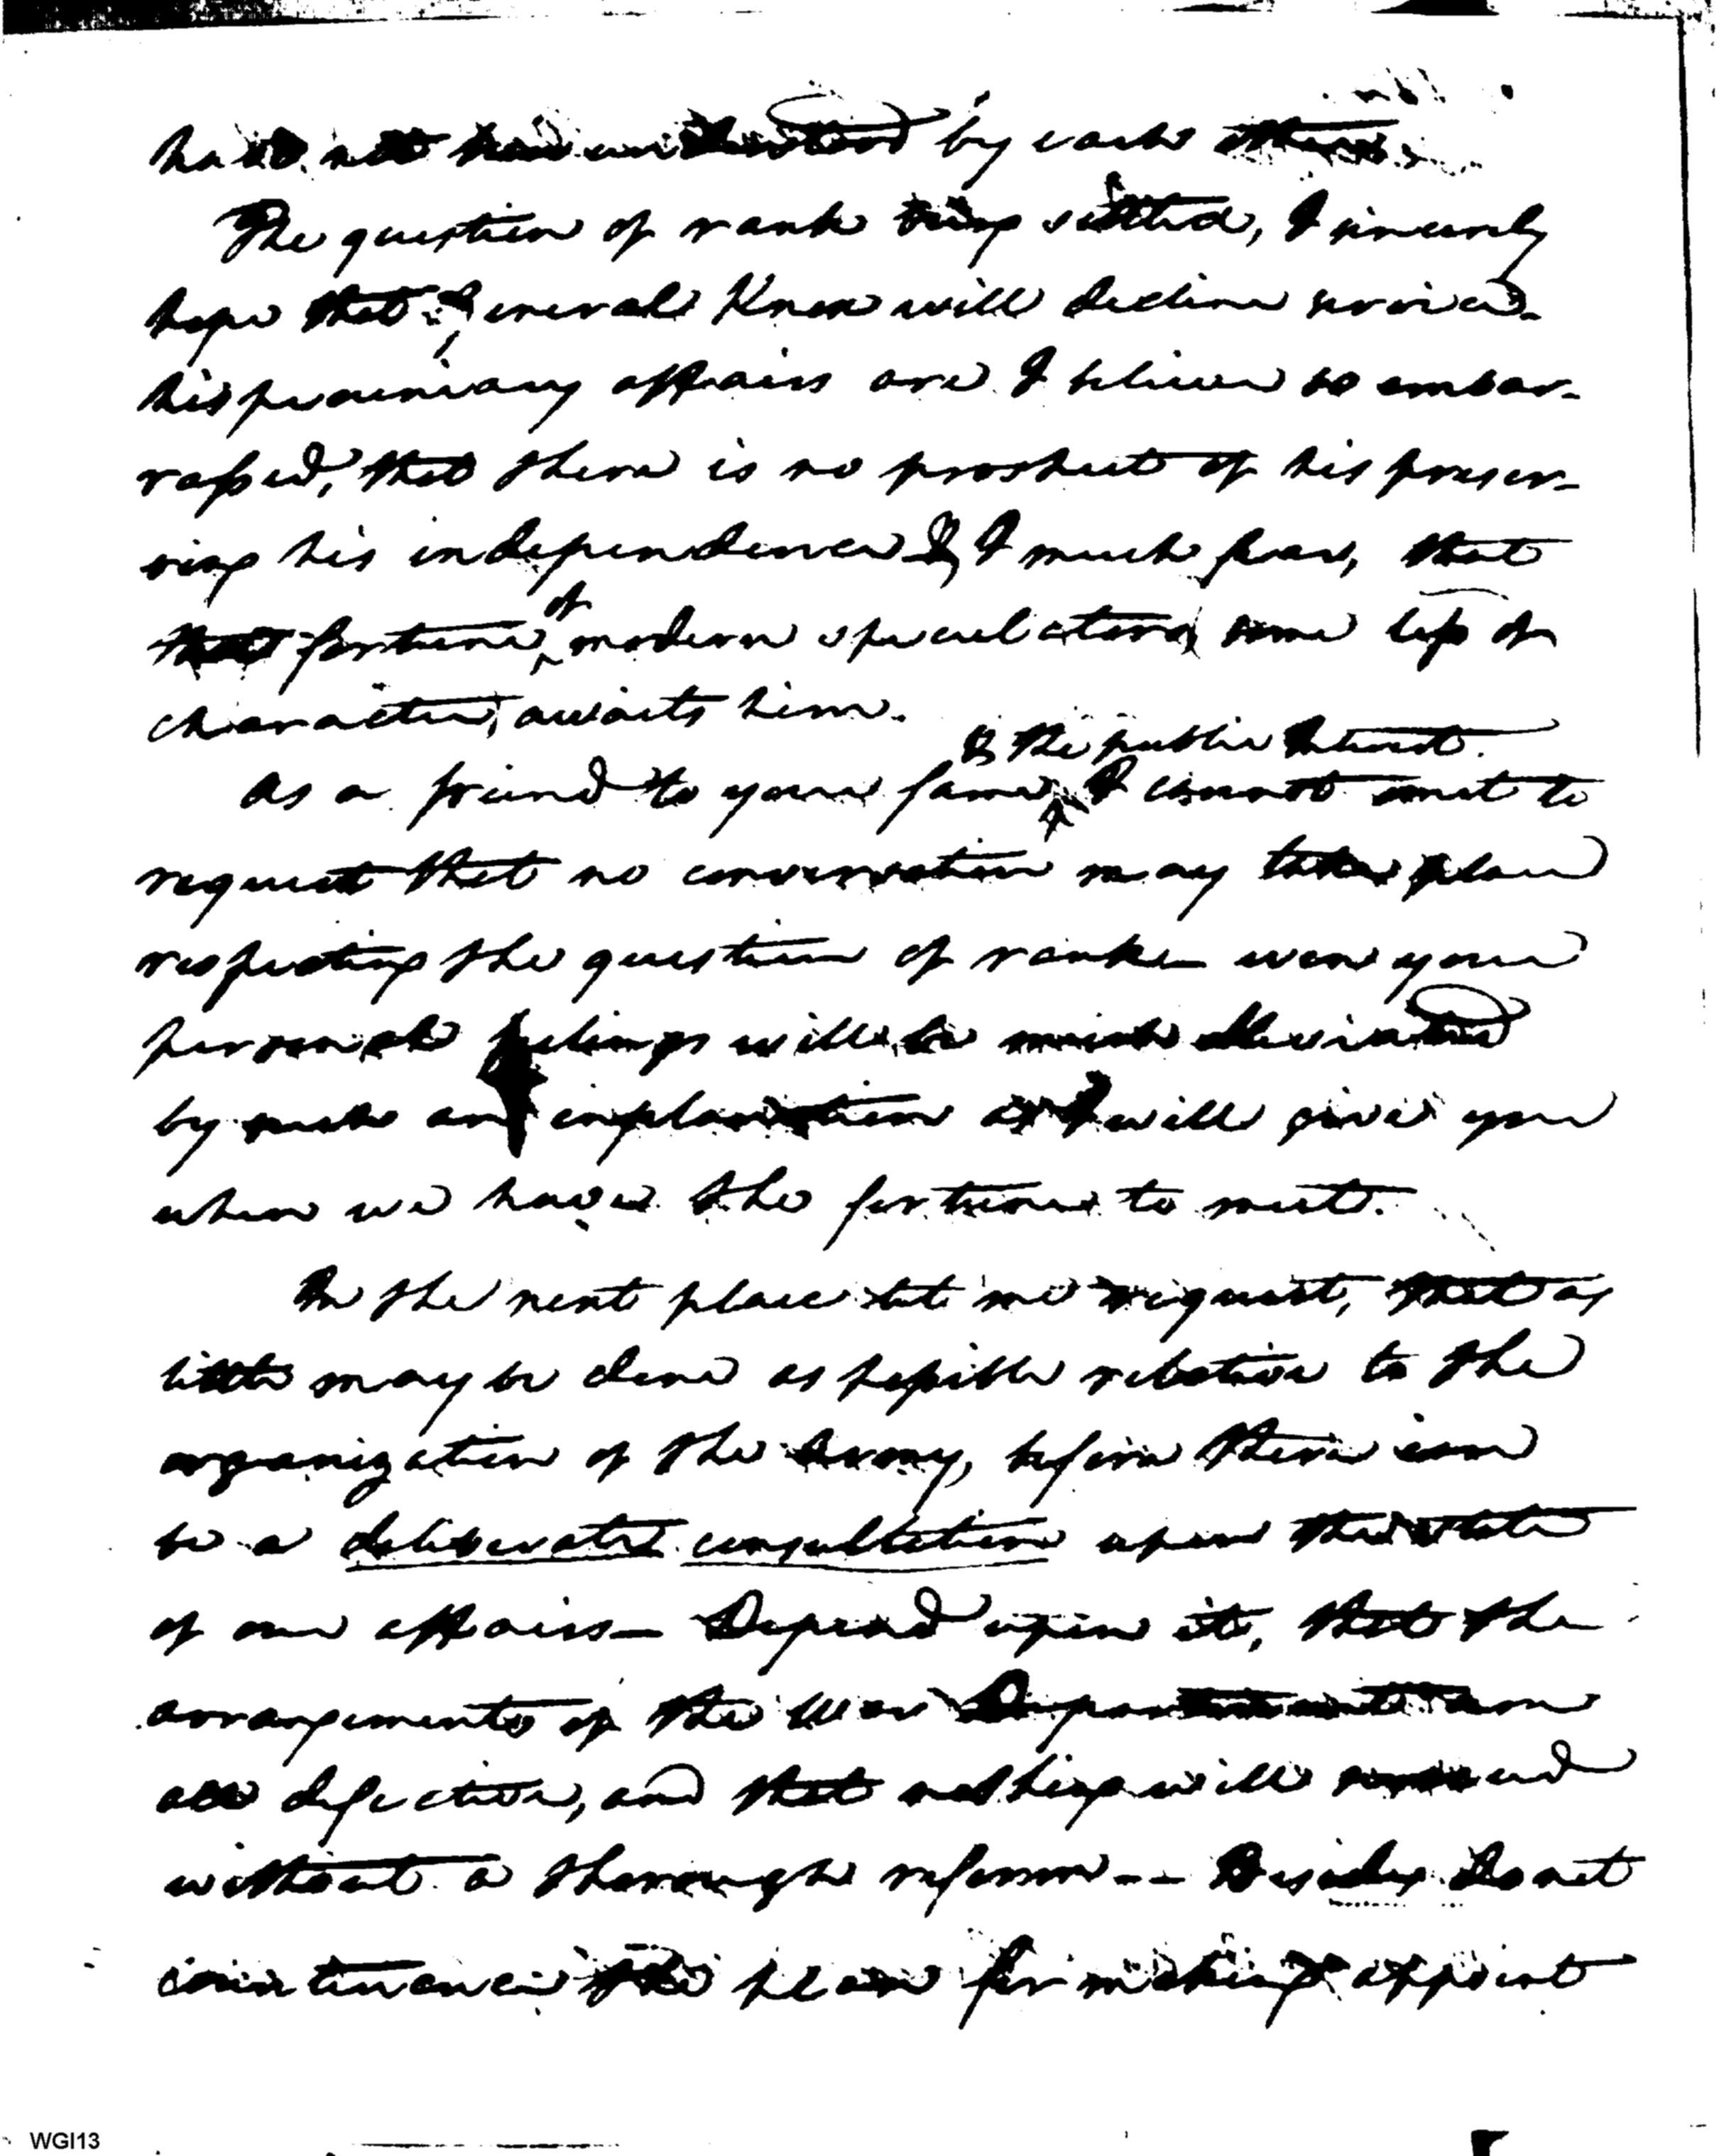 had not been understood by each other.
The question of rank being settled, I sincerely
hope that General Knox will decline service.
his pecuniary affairs are I believe so embar-
rassed, that there is no prospect of his preser-
ving his independence & I much fear, that
that fortune of modern speculators, some loss of
character, awaits him.
& the public interest.
As a friend to your fame, I cannot omit to
request that no conversation may take place
respecting the question of rank – even your
personal feelings will be much alleviated
by such an explanation as I will give you
when we have the fortune to meet.
In the next place let me request, that as
little may be done as possible relative to the
organization of the Army, before there can
be a deliberate consultation upon the state
of our affairs — Depend upon it, that the
arrangements of the War Department are
all defective, and that nothing will succeed
without a thorough reform -- Besides do not
countenance the plan for making appoint
WGI13